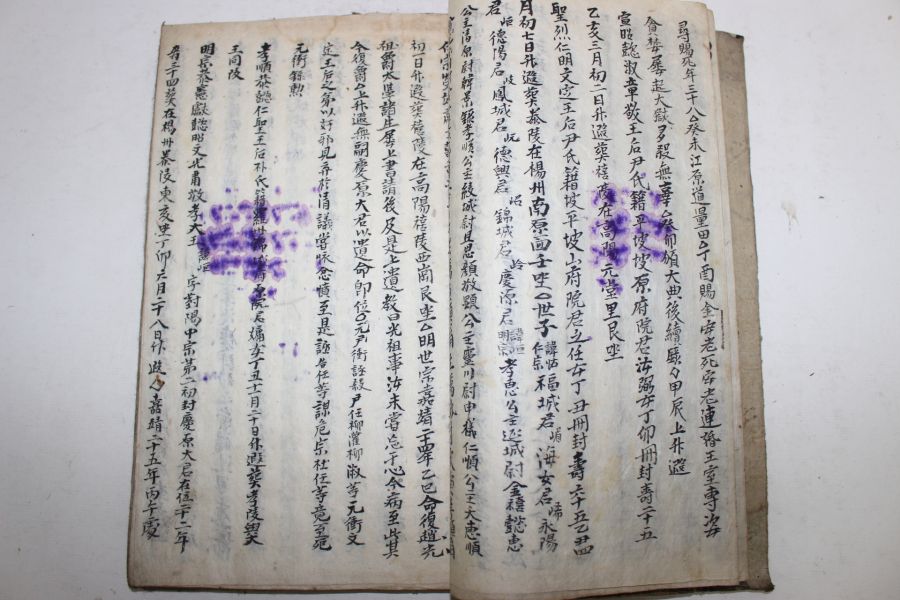 尋賜死年三十八△癸未江原道量田△丁酉賜金安老死安老連婚王室專
貪婪屢起大獄多殺無辜△癸卯頒大典後續錄△甲辰上升遐
宣昭懿淑章敬王后尹氏籍坡平坡原府院君汝弼女丁卯冊封壽二十五
乙亥三月初二日升遐葬禧陵在高陽元堂里艮坐
聖烈仁明文定王后尹氏籍坡平坡山府院君之任女丁丑冊封壽六十五乙丑四
月初七日升遐葬泰陵在楊州南原面壬坐○世子諱岵仁宗福城君嵋海女君永陽
君德陽君岐鳳城君岏德興君岹錦城君岭慶源君諱峘明宗孝惠公主延城尉金禧懿惠
公主清原尉韓景祿孝順公主綾城尉具思顔敬顯公主靈川尉申檥仁順公主大惠順
初一日升遐葬孝陵在高陽禧陵西崗艮坐△明世宗嘉靖二十四年乙巳命復趙光
祖爵太學諸生屢上書請復及是上遺敎曰光祖事汝未嘗忘于心今病至此其
令復爵△上升遐無嗣慶原大君以遺命卽位○元尹衡誣殺尹任柳灌柳淑等元衡文
定王后之弟以奸邪見棄於淸議嘗啄忿憤至是誣告任等謀危宗社任等竟至死
元衡錄勳
孝順恭懿仁聖王后朴氏籍羅州錦城府院君墉女丁丑十一月二十日升遐葬孝陵與大
王同陵
明宗恭憲獻懿昭文光肅敬孝大王諱峘字對陽中宗第二初封慶原大君在位二十二年
壽三十四葬在楊州泰陵東亥坐丁卯六月二十八日升遐△嘉靖二十五年丙午慶